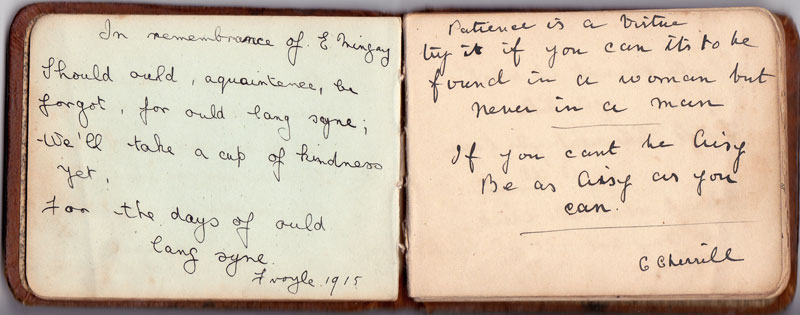 In remembrance of E Mingay
Should ould, aquaintence, be
forgot, for ould lang syne;
We'll take a cup of kindness
yet,
For the days of ould
lang syne.
Froyle. 1915
Patience is a Virtue
try it if you can its to be
found in a woman but
never in a man
If you cant be Aisy
Be as Aisy as you
can.
C Cherrill